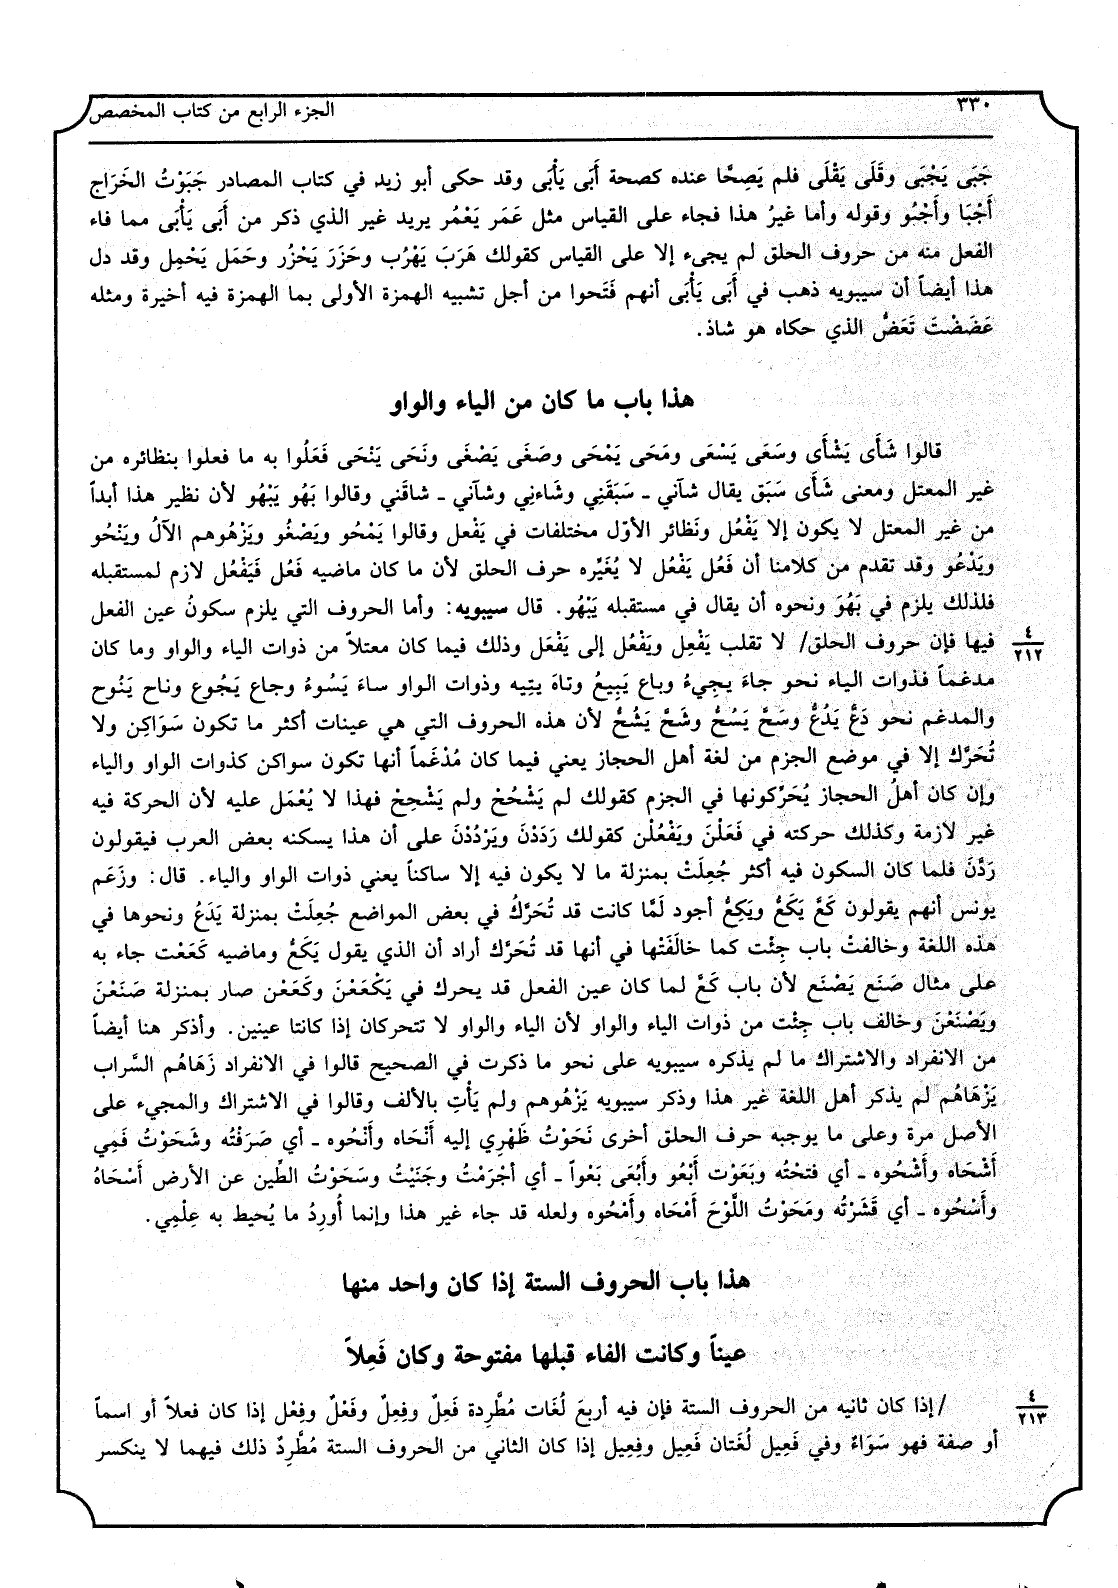 ٣٣٠
الجزء الرابع من كتاب المخصص
جَبَى يَجْبَى وقَلَى يَقْلَى فلم يَصِحَّا عنده كصحة أَبَى يَأْبَى وقد حكى أبو زيد في كتاب المصادر جَبَوْتُ الخَرَاج
أَجْبَا وأَجْبُو وقوله وأما غيرُ هذا فجاء على القياس مثل عَمَر يَعْمُر يريد غير الذي ذكر من أَبَى يَأْبَى مما فاء
الفعل منه من حروف الحلق لم يجىء إلا على القياس كقولك هَرَبَ يَهْرُب وحَزَرَ يَحْزُر وحَمَل يَحْمِل وقد دل
هذا أيضاً أن سيبويه ذهب في أَبَى يَأْبَى أنهم فَتَحوا من أجل تشبيه الهمزة الأولى بما الهمزة فيه أخيرة ومثله
عَضَضْتَ تَعَضُّ الذي حكاه هو شاذ.
هذا باب ما كان من الياء والواو
قالوا شَأَى يَشْأَى وسَعَى يَسْعَى ومَحَى يَمْحَى وصَغَى يَصْغَى ونَحَى يَنْحَى فَعَلُوا به ما فعلوا بنظائره من
غير المعتل ومعنى شَأَى سَبَق يقال شآني ـ سَبَقَنِي وشَاءَنِي وشآني ـ شاقَني وقالوا بَهُو يَبْهُو لأن نظير هذا أبداً
من غير المعتل لا يكون إلا يَفْعُل ونَظائر الأوّل مختلفات في يَفْعل وقالوا يَمْحُو ويَصْغُو ويَزْهُوهم الآلُ ويَنْحُو
ويَدْعُو وقد تقدم من كلامنا أن فَعُل يَفْعُل لا يُغَيِّره حرف الحلق لأن ما كان ماضيه فَعُل فَيَفْعُل لازم لمستقبله
فلذلك يلزم في بَهُوَ ونحوه أن يقال في مستقبله يَبْهُو. قال سيبويه: وأما الحروف التي يلزم سكونُ عين الفعل
فيها فإن حروف الحلق/ لا تقلب يَفْعِل ويَفْعُل إلى يَفْعَل وذلك فيما كان معتلاً من ذوات الياء والواو وما كان
٤
٢١٢
مدغماً فذوات الياء نحو جاءَ يجِيءُ وباع يَبِيعُ وتاهَ يتِيه وذوات الواو ساءَ يَسُوءُ وجاع يَجُوع وناح يَنُوح
والمدغم نحو دَعَّ يَدُعُّ وسَحَّ يَسُحُّ وشَحَّ يَشُحُّ لأن هذه الحروف التي هي عينات أكثر ما تكون سَوَاكِن ولا
تُحَرَّك إلا في موضع الجزم من لغة أهل الحجاز يعني فيما كان مُدْغَماً أنها تكون سواكن كذوات الواو والياء
وإن كان أهلُ الحجاز يُحَرِّكونها في الجزم كقولك لم يَشْحُحْ ولم يَشْحِحْ فهذا لا يُعْمَل عليه لأن الحركة فيه
غير لازمة وكذلك حركته في فَعَلْنَ ويَفْعُلْن كقولك رَدَدْنَ ويَرْدُدْنَ على أن هذا يسكنه بعض العرب فيقولون
رَدَّنَ فلما كان السكون فيه أكثر جُعِلَتْ بمنزلة ما لا يكون فيه إلا ساكناً يعني ذوات الواو والياء. قال: وزَعَم
يونس أنهم يقولون كَعَّ يَكَعُّ ويَكِعُّ أجود لَمَّا كانت قد تُحَرَّكُ في بعض المواضع جُعِلَتْ بمنزلة يَدَعُ ونحوها في
هذه اللغة وخالفتْ باب جِئْت كما خالَفَتْها في أنها قد تُحَرَّك أراد أن الذي يقول يَكَعُّ وماضيه كَعَعْت جاء به
على مثال صَنَع يَصْنَع لأن باب كَعَّ لما كان عين الفعل قد يحرك في يَكْعَعْنَ وكَعَعْن صار بمنزلة صَنَعْنَ
ويَصْنَعْنَ وخالف باب جِئْت من ذوات الياء والواو لأن الياء والواو لا تتحركان إذا كانتا عينين. وأذكر هنا أيضاً
من الانفراد والاشتراك ما لم يذكره سيبويه على نحو ما ذكرت في الصحيح قالوا في الانفراد زَهَاهُم السَّراب
يَزْهَاهُم لم يذكر أهل اللغة غير هذا وذكر سيبويه يَزْهُوهم ولم يَأْتِ بالألف وقالوا في الاشتراك والمجيء على
الأصل مرة وعلى ما يوجبه حرف الحلق أخرى نَحَوْتُ ظَهْرِي إليه أَنْحَاه وأَنْحُوه ـ أي صَرَفْتُه وشَحَوْتُ فَمِي
أَشْحَاه وأَشْحُوه ـ أي فتحْتُه وبَعَوْت أَبْعُو وأَبْعَى بَعْواً ـ أي أجْرَمْتُ وجَنَيْتُ وسَحَوْتُ الطِّين عن الأرض أَسْحَاهُ
وأَسْحُوه ـ أي قَشَرْتُه ومَحَوْتُ اللَّوْحَ أَمْحَاه وأَمْحُوه ولعله قد جاء غير هذا وإنما أُورِدُ ما يُحيط به عِلْمِي.
هذا باب الحروف الستة إذا كان واحد منها
عيناً وكانت الفاء قبلها مفتوحة وكان فَعِلاً
/إذا كان ثانيه من الحروف الستة فإن فيه أربعَ لُغَات مُطَّرِدة فَعِلٌ وفِعِلٌ وفَعْلٌ وفِعْل إذا كان فعلاً أو اسماً
٤
٢١٣
أو صفة فهو سَوَاءٌ وفي فَعِيل لُغَتان فَعِيل وفِعِيل إذا كان الثاني من الحروف الستة مُطَّرِدٌ ذلك فيهما لا ينكسر